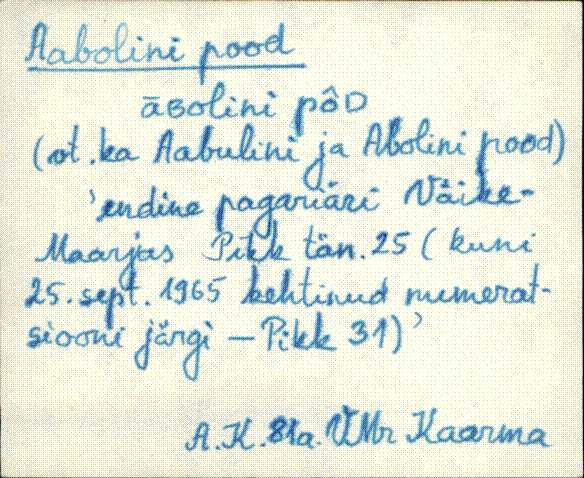 Aabolini pood
āʙolini pôᴅ
(ot. ka Aabulini ja Abolini pood)
'endine pagariäri Väike-
Maarjas Pikk tän. 25 (kuni
25. sept. 1965 kehtinud numerat-
siooni järgi – Pikk 31)'
A.K. 81a. VMr Kaarma